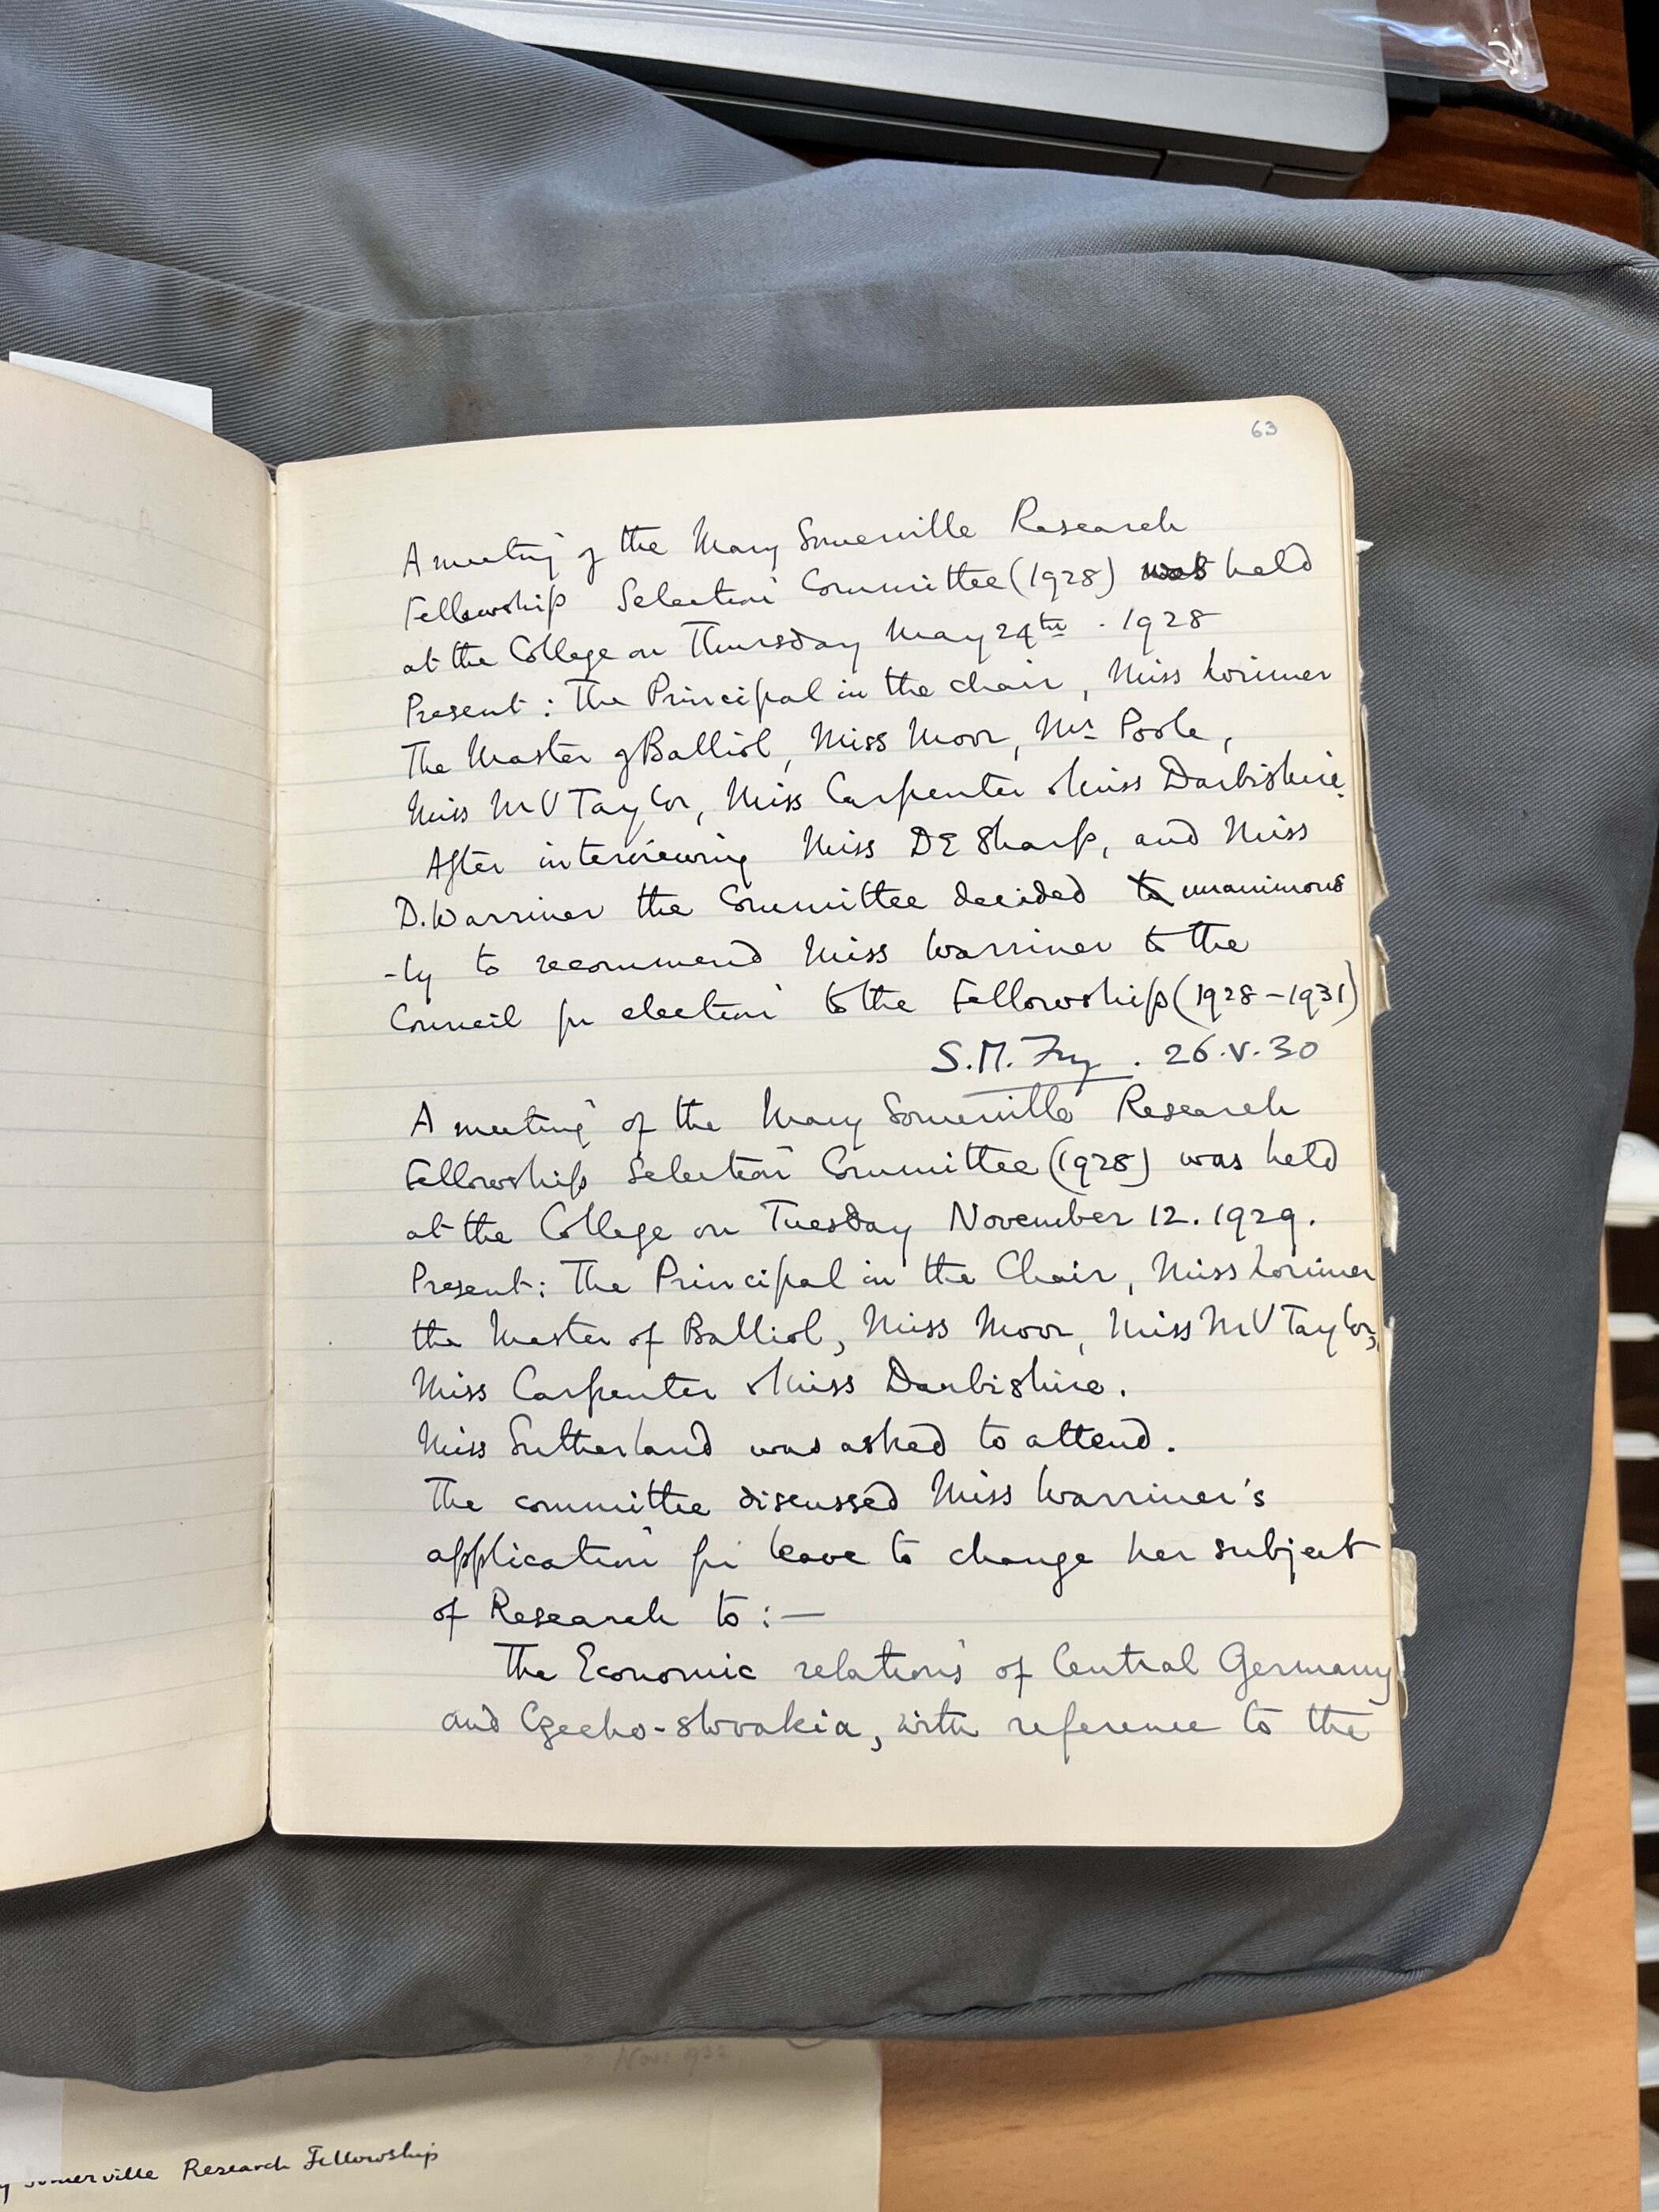 63
A meeting of the Mary Somerville Research
Fellowship Selection Committee (1928) was held
at the College on Thursday May 24th . 1928
Present : The Principal in the chair, Miss Lorimer
The Master of Balliol, Miss Moor, Mr Poole,
Miss M V Taylor, Miss Carpenter & Miss Darbishire.
After interviewing Miss D E Sharp, and Miss
D. Warriner the Committee decided to unanimous
-ly to recommend Miss Warriner to the
Council for election to the Fellowship (1928-1931)
S.M. Fry . 26.V.30
A meeting of the Mary Somerville Research
Fellowship Selection Committee (1928) was held
at the College on Tuesday November 12. 1929.
Present : The Principal in the Chair, Miss Lorimer
the Master of Balliol, Miss Moor, Miss M V Taylor,
Miss Carpenter & Miss Darbishire.
Miss Sutherland was asked to attend.
The committee discussed Miss Warriner's
application for leave to change her subject
of Research to :—
The Economic relations of Central Germany
and Czecho-slovakia, with reference to the
Nov.
y Somerville Research Fellowship